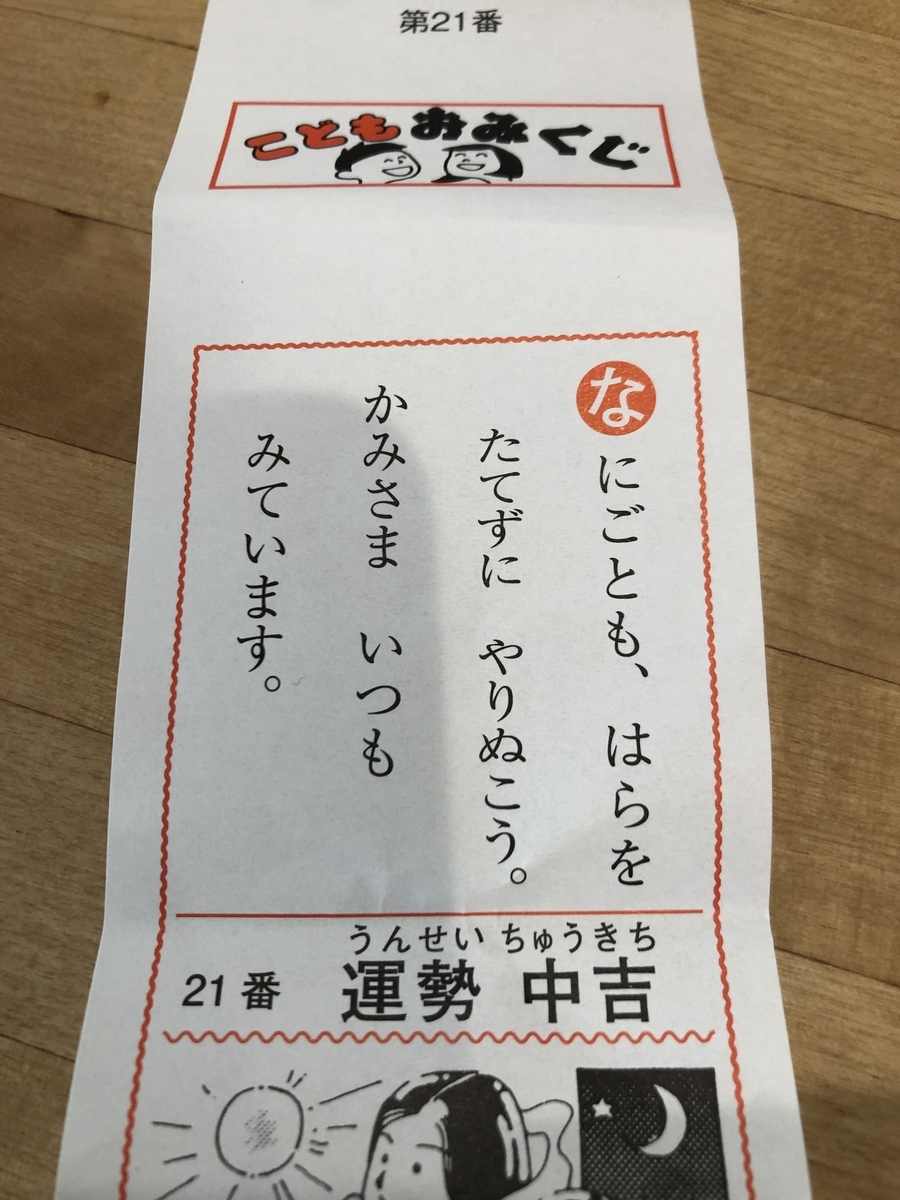 第21番
こどもおみくじ
なにごとも、はらを
たてずに　やりぬこう。
かみさま　いつも
みています。
うんせい ちゅうきち
21番 運勢 中吉